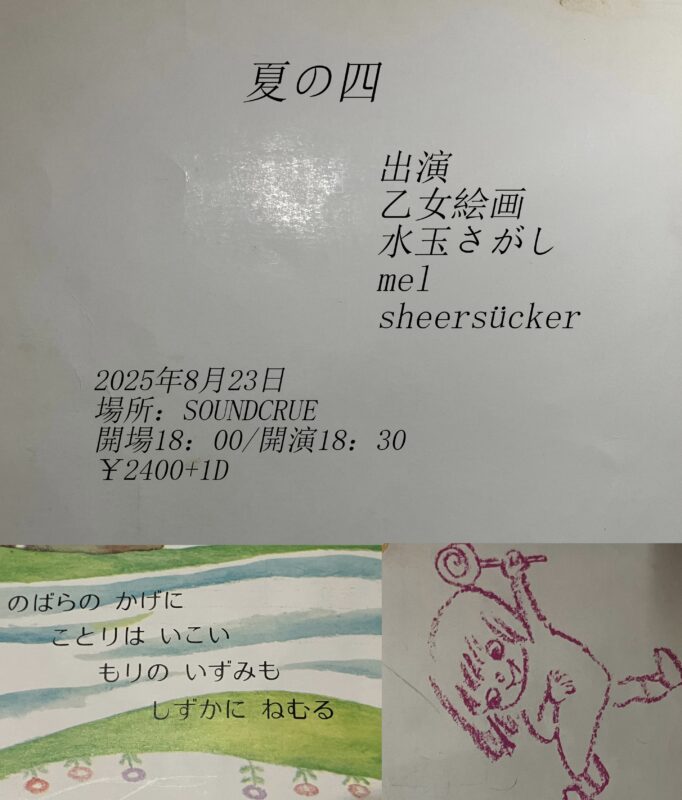 夏の四
出演
乙女絵画
水玉さがし
mel
sheersücker
2025年8月23日
場所：SOUNDCRUE
開場18：00/開演18：30
￥2400+1D
のばらの かげに
ことりは いこい
もりの いずみも
しずかに ねむる